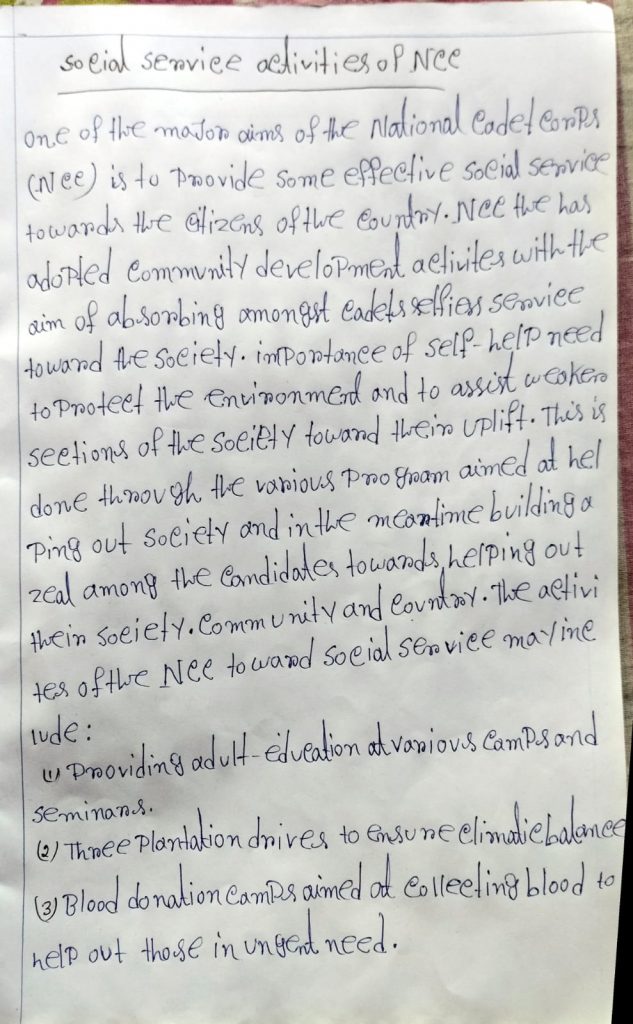 social service activities of NCC
one of the major aims of the National Cadet Corps
(NCC) is to Provide some effective social service
towards the citizens of the Country. NCC the has
adopted Community development activites with the
aim of absorbing amongst Cadets selfiess service
toward the Society. importance of self-help need
to Protect the environment and to assist weaker
sections of the sociEty toward their uplift. This is
done through the various Program aimed at hel
Ping out society and in the meantime building a
zeal among the Candidates towards helping out
their society. Community and Country. The activi
tes of the NCC toward social service may inc
lude:
(1) Providing adult-education at various Camps and
seminars.
(2) Three Plantation drives to ensure climatic balance
(3) Blood donation Camps aimed at collecting blood to
help out those in urgent need.